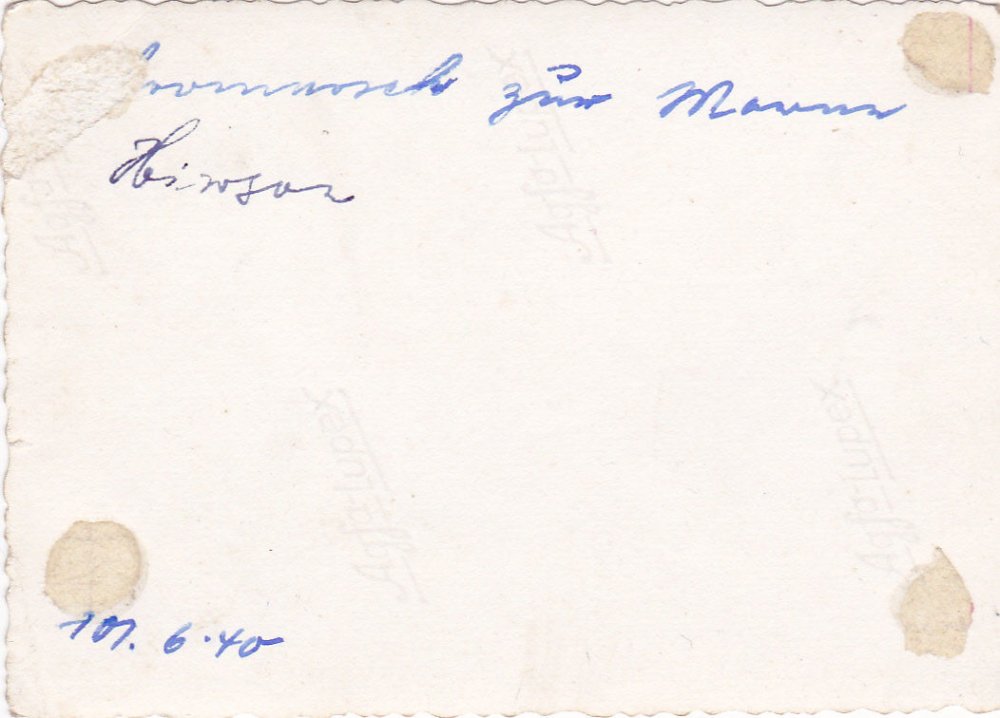 zur Marne
Hirson
6.40
Agfa-Lupex
Agfa-Lupex
Agfa-Lupex
Agfa-Lupex